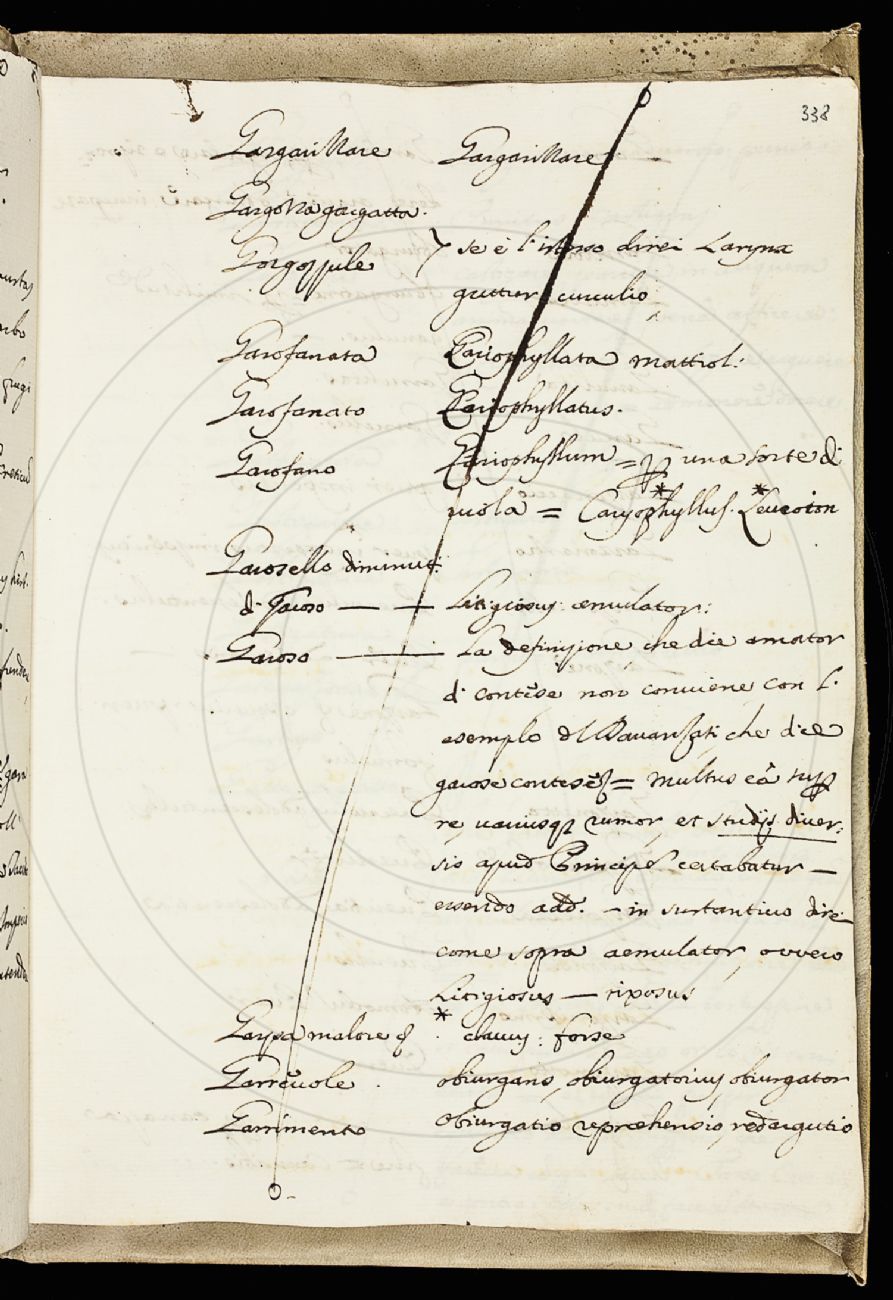 338
Gargarizzare Gargarizzare
Gargozza gargatta.
Gorgozzule se è l'istesso direi Larynx
guttur curculio
Garofanata Cariophyllata Mattiol:
Garofanato Cariophyllatus.
Garofano Cariophyllum = una sorte di
viola = Caryophyllus. Leucoion
Garosello diminut:
di Garoso — Litigiosus æmulator:
Garoso — La definizione, che dice amator
di contese non conviene, con l'
esempio del Davanzati, che dice
garose contese = Multus ea super
re, variusque rumor, et studijs diver-
sis apud Principem certabatur —
essendo add. — in sustantivo dire
come sopra aemulator, ovvero
Litigiosus — rixosus
Garpa malore * clavus: forse
Garrevole. obiurgans, obiurgatorius, obiurgator
Garrimento obiurgatio reprœhensio, redargutio